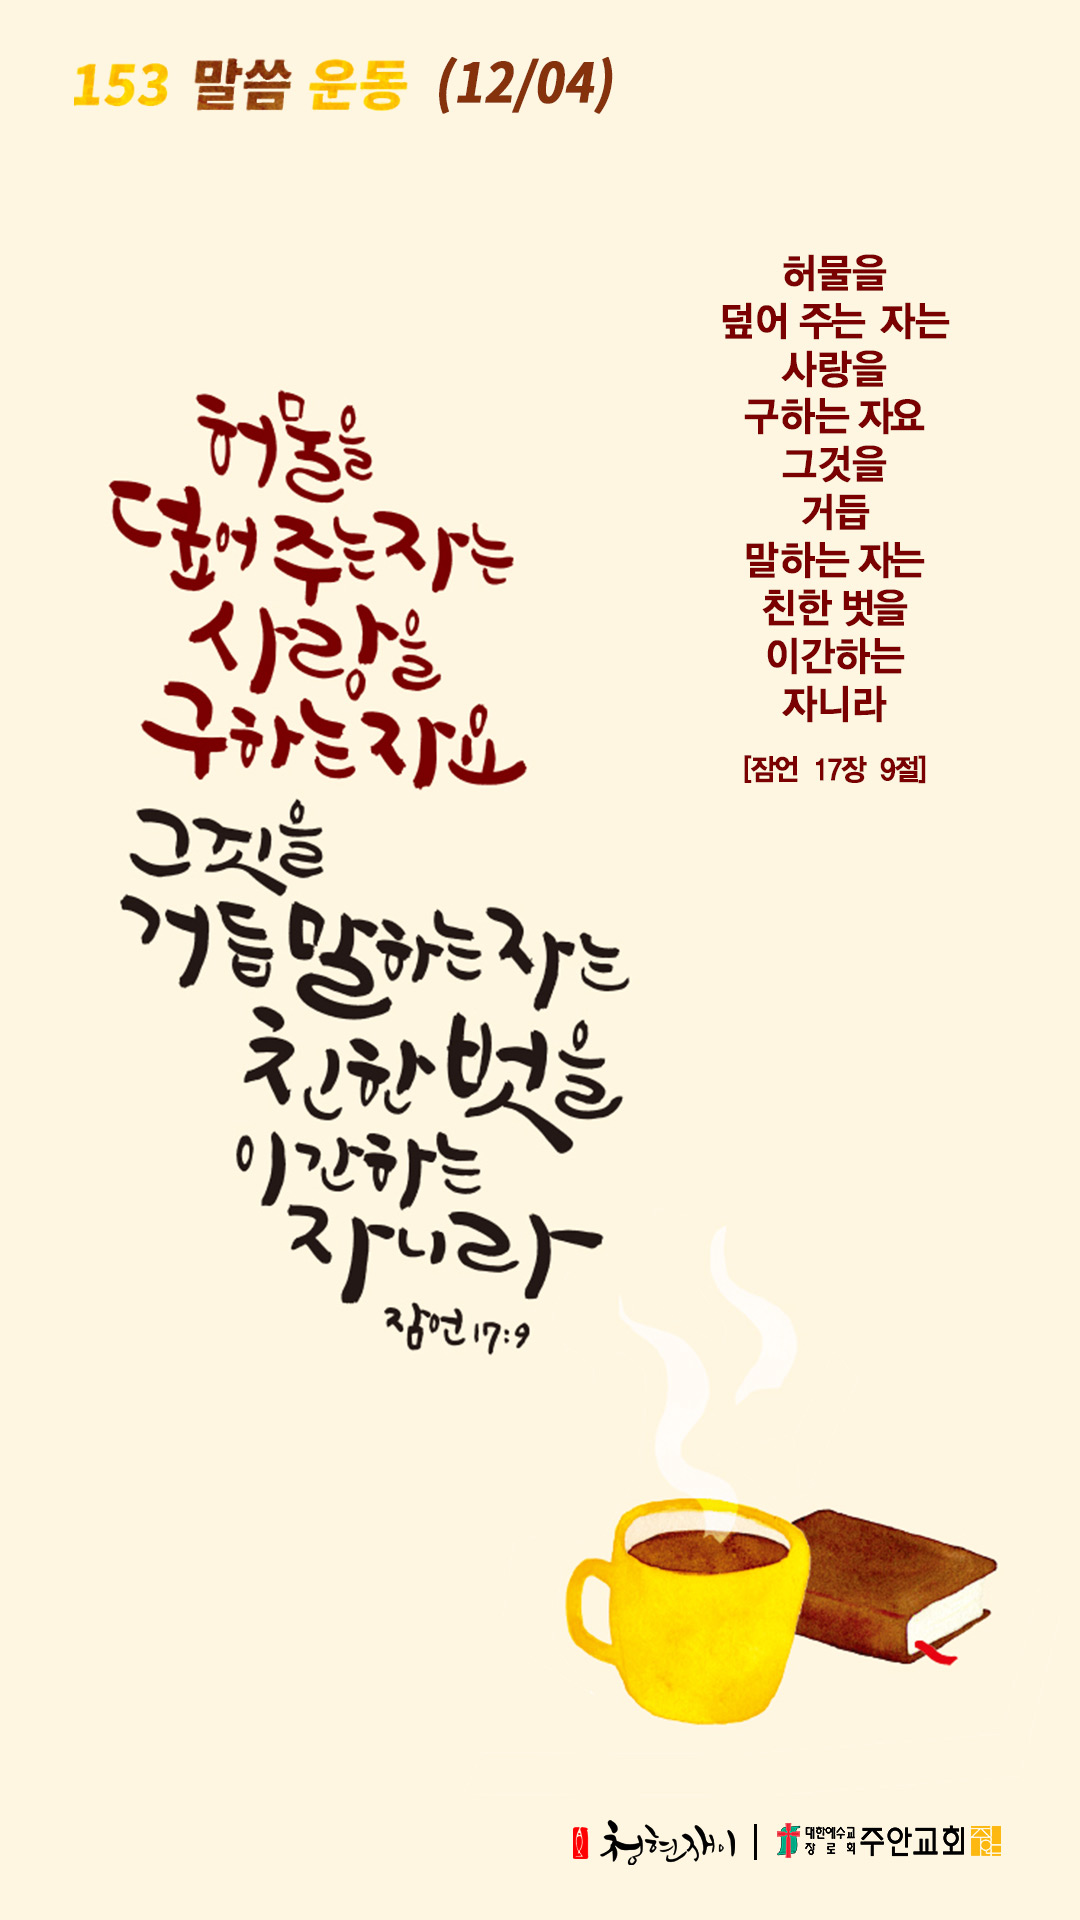 153 말씀 운동 (12/04)
허물을
덮어 주는 자는
사랑을
구하는 자요
그것을
거듭
말하는 자는
친한 벗을
이간하는
자니라
[잠언 17장 9절]
허물을
덮어 주는 자는
사랑을
구하는 자요
그것을
거듭 말하는 자는
친한 벗을
이간하는
자니라
잠언 17:9
청현재이
대한예수교
장로회
주안교회
주안